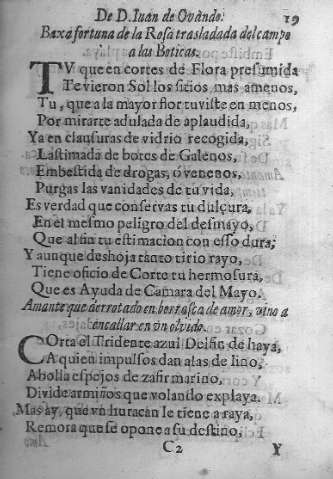 De D. Iuan de Ovando. 19
Baxa fortuna de la Rosa trasladada del campo
a las Boticas.
TV que en cortes de Flora presumida
Te vieron Sol los sitios mas amenos,
Tu, que a la mayor flor tuviste en menos,
Por mirarte adulada de aplaudida,
Ya en clausuras de vidrio recogida,
Lastimada de botes de Galenos,
Embestida de drogas, ò venenos,
Purgas las vanidades de tu vida,
Es verdad que conservas tu dulçura,
En el mesmo peligro del desmayo,
Que aun tu estimacion con esso dura;
Y aunque deshoja tanto tirio rayo,
Tiene oficio de Corte tu hermosura,
Que es Ayuda de Camara del Mayo.
Amante que derrotado en berrasca de amor, vino a
encallar en un olvido.
COrta el Tridente azul Delfin de haya,
A quien impulsos dan alas de lino,
Abolla espejos de zafir marino,
Divide armiños que volando explaya.
Mas ay, que vn huracan le tiene a raya,
Remora que se opone a su destino,
C2 Y